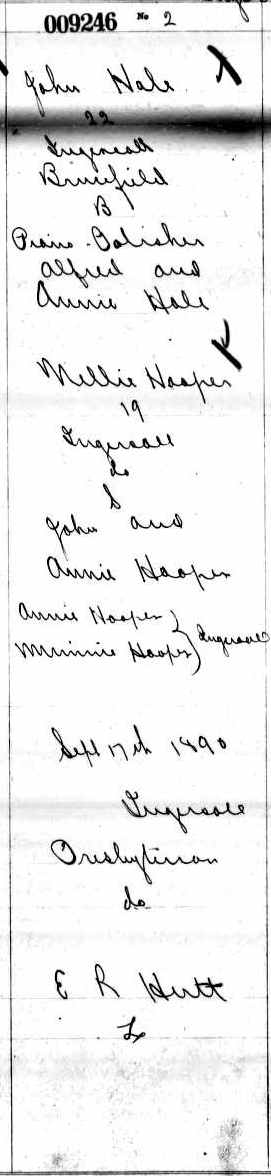 009246 No 2
John Hale X
22
Ingersoll
Brucefield
B
Piano Polisher
Alfred and
Annie Hale
Millie Hooper
19
Ingersoll
do
S
John and
Annie Hooper
Annie Hooper }
Minnie Hooper } Ingersoll
Sept 17th 1890
Ingersoll
Presbyterian
do
E R Hutt